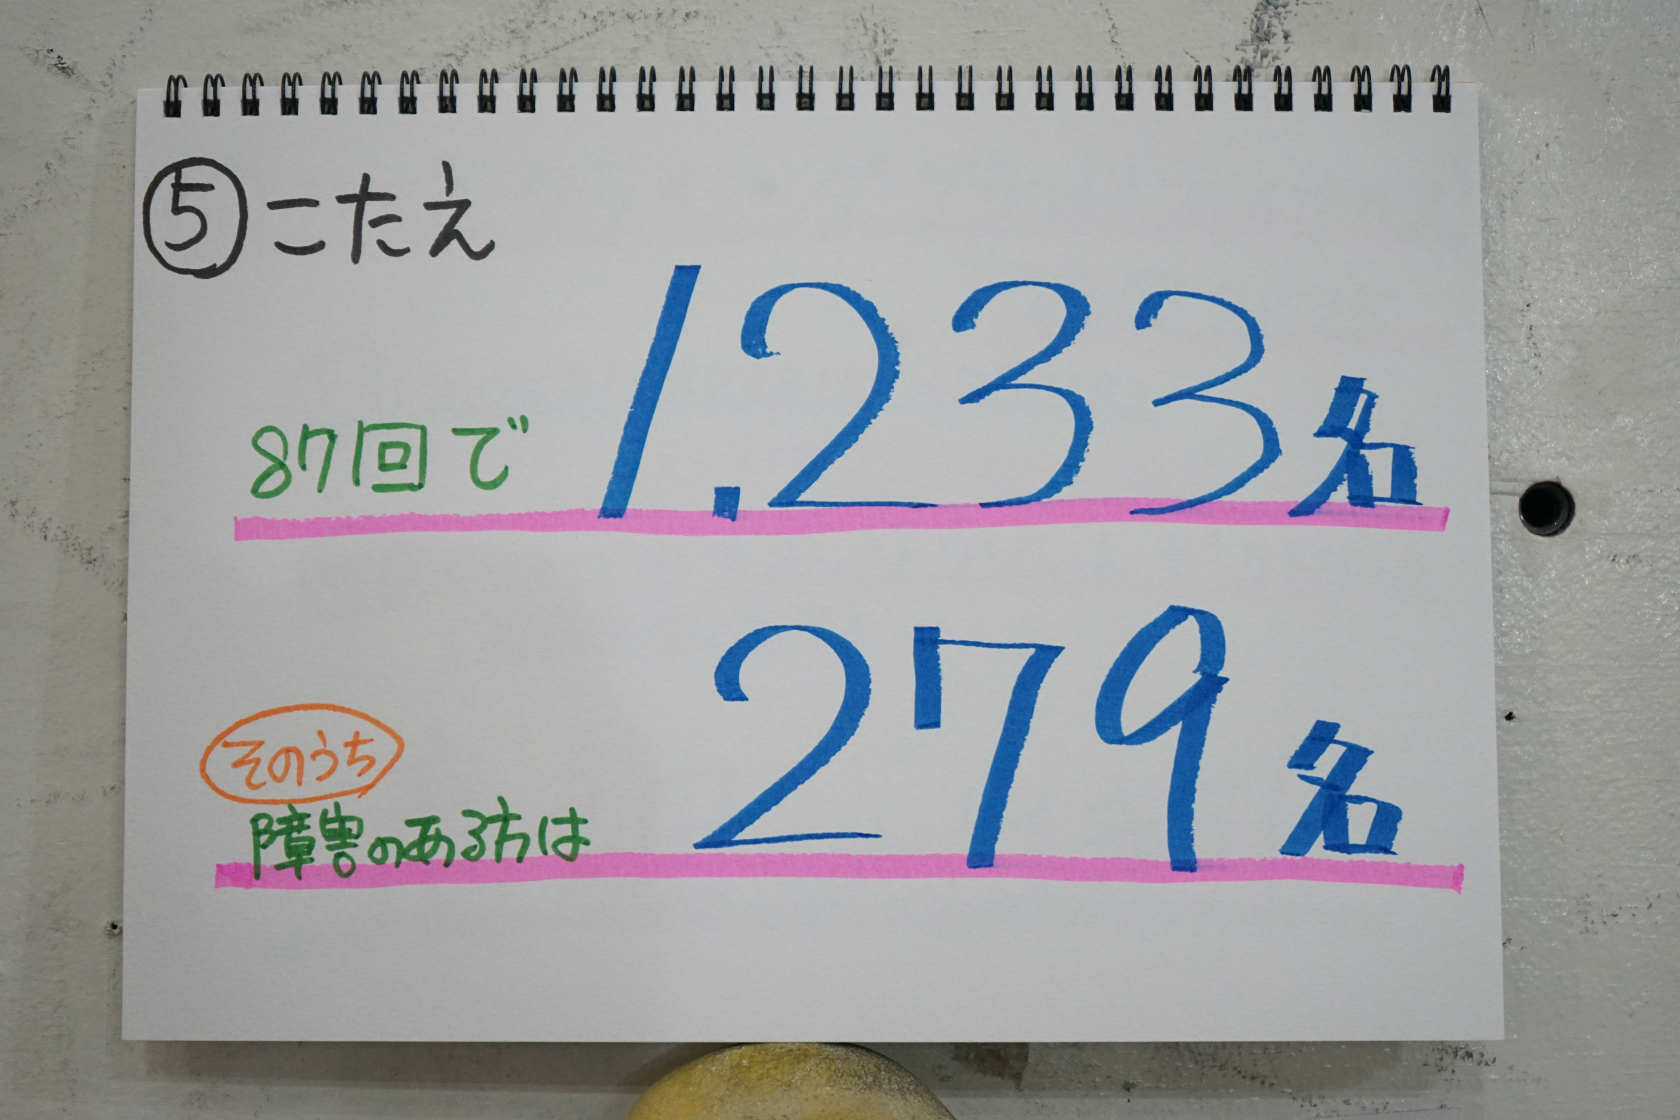 ⑤こたえ
87回で 1.233名
そのうち
障害のある方は 279名